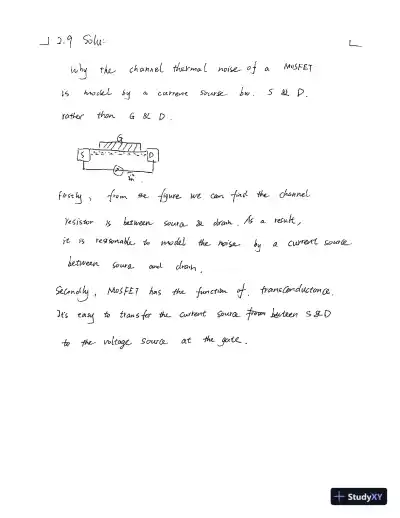 2.9 Solu:
Why the channel thermal noise of a MOSFET
is model by a current source bw. S & D.
rather than G & D.
G
S
D
Firstly, from the figure we can find the channel
resistor is between source & drain. As a result,
it is reasonable to model the noise by a current source
between source and drain.
Secondly, MOSFET has the function of transconductance.
It's easy to transfer the current source from between S & D
to the voltage source at the gate.
StudyXY